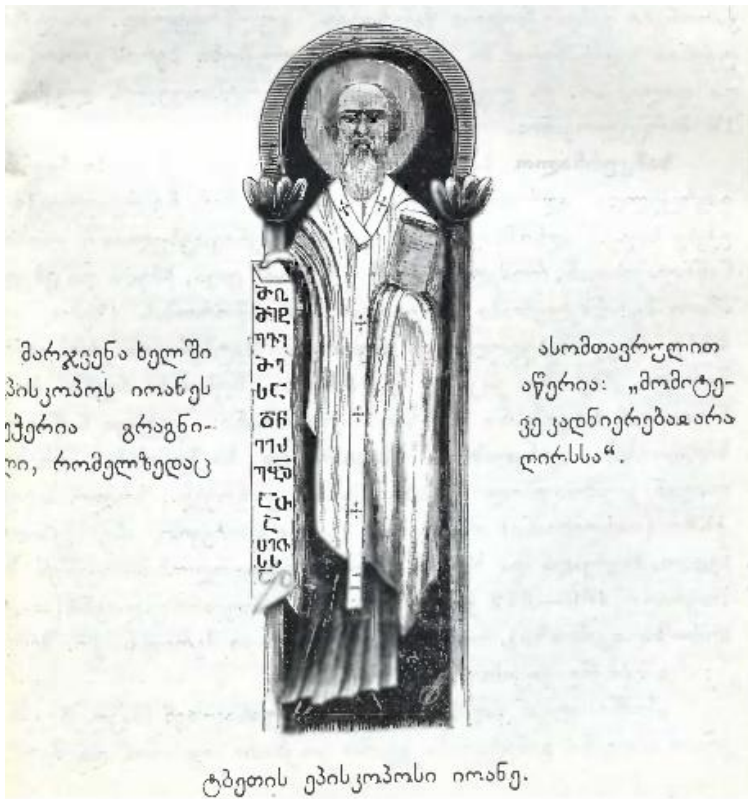 მარჯვენა ხელში
პისკოპოს იოანეს
უჭერია გრაგნი-
ლი, რომელზედაც
ასომთავრულით
აწერია: „მომიტე-
ვე კადნიერებაჲ არა
ღირსსა“.
ტბეთის ეპისკოპოსი იოანე.